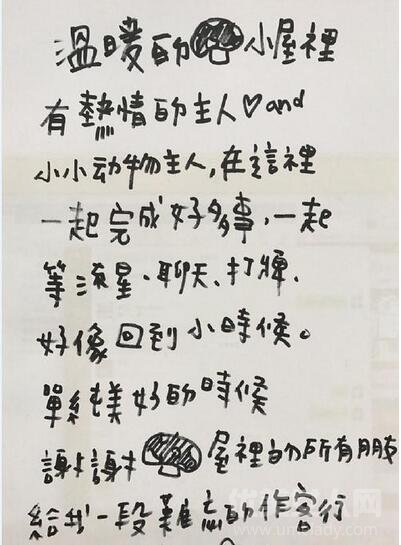 溫暖的 小屋裡
有熱情的主人♡and
小小动物主人,在這裡
一起完成好多事,一起
等流星、聊天、打牌.
好像回到小時候。
單純美好的時候
謝謝 屋裡的所有朋
給我一段難忘的作客行